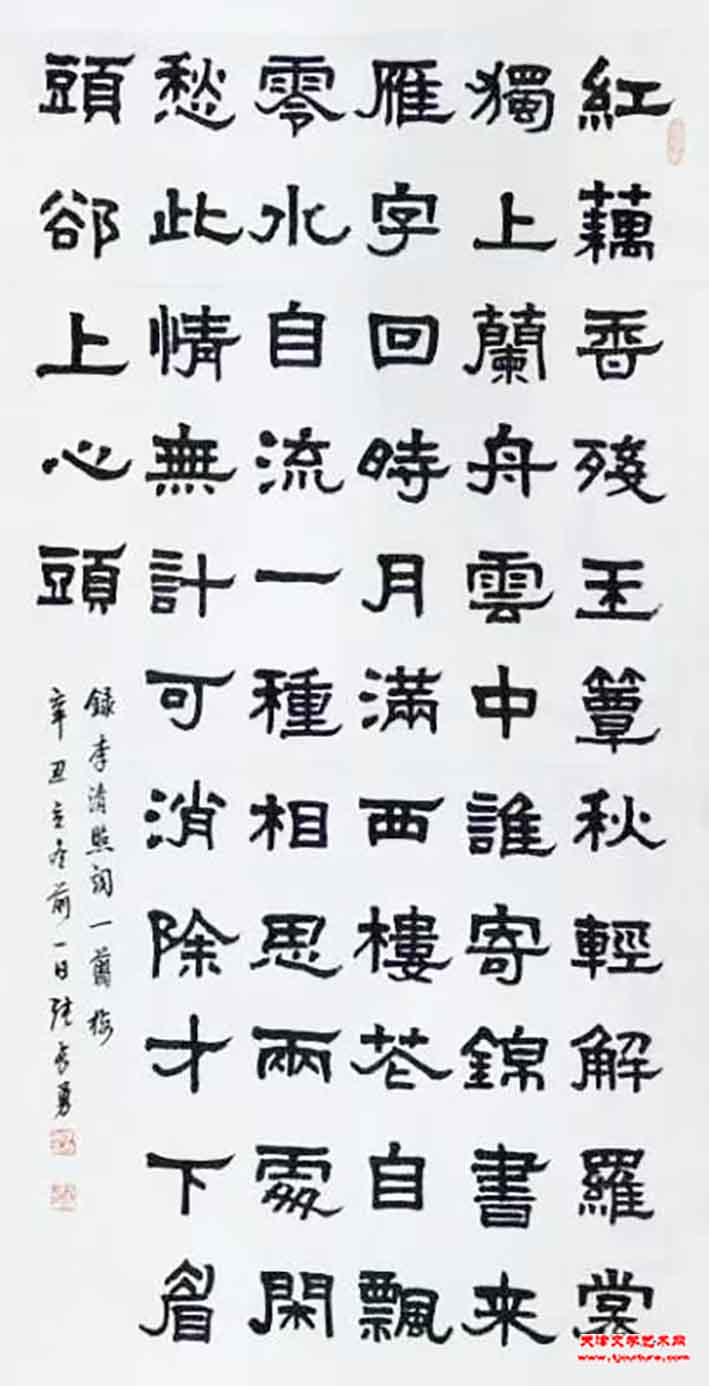 紅藕香殘玉簟秋輕解羅裳
獨上蘭舟雲中誰寄錦書来
雁字回時月滿西樓花自飄
零水自流一種相思兩處閑
愁此情無計可消除才下眉
頭卻上心頭
錄李清照詞一剪梅
辛丑立冬前一日張長勇
天津文学艺术网
www.tjculture.com